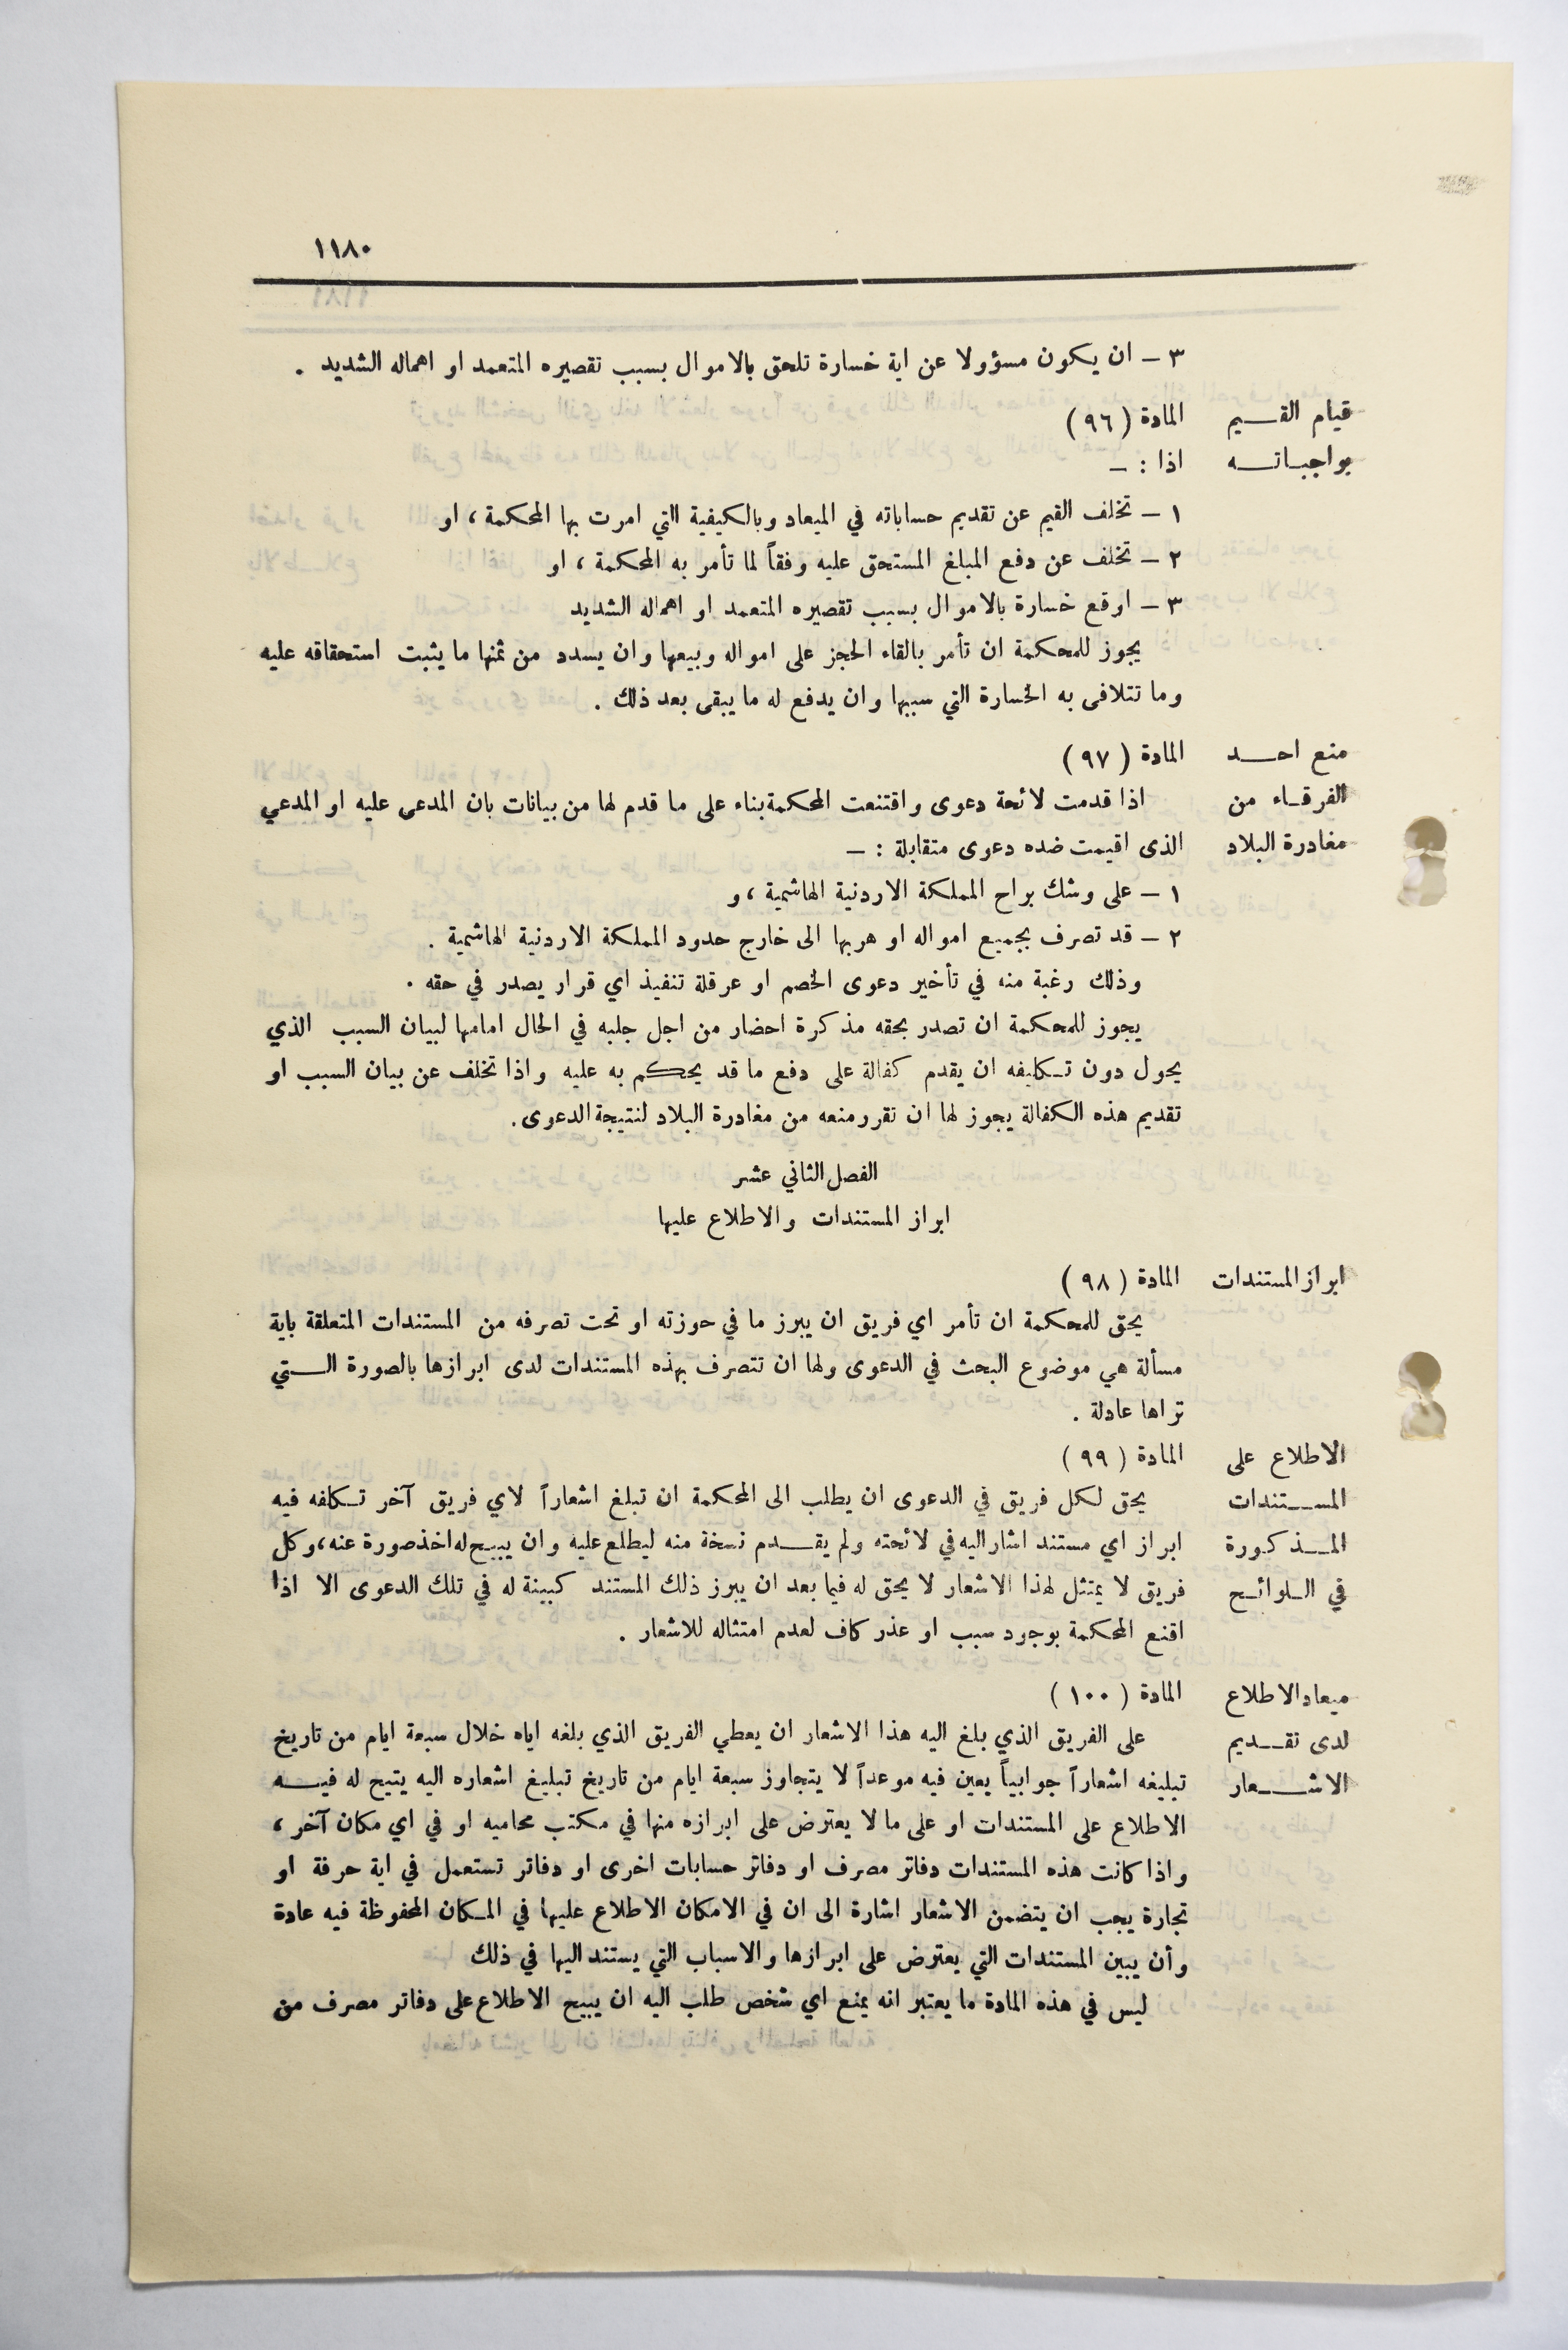 ١١٨٠
٣ – ان يكون مسؤولا عن اية خسارة تلحق بالاموال بسبب تقصيره المتعمد او اهماله الشديد .
قيام القـــيم المادة ( ٩٦ )
بواجبـاتــه اذا : –
١ – تخلف القيم عن تقديم حساباته في الميعاد وبالكيفية التي امرت بها المحكمة ، او
٢ – تخلف عن دفع المبلغ المستحق عليه وفقاً لما تأمر به المحكمة ، او
٣ – اوقع خسارة بالاموال بسبب تقصيره المتعمد او اهماله الشديد
يجوز للمحكمة ان تأمر بالقاء الحجز على امواله وبيعها وان يسدد من ثمنها ما يثبت استحقاقه عليه
وما تتلافى به الخسارة التي سببها وان يدفع له ما يبقى بعد ذلك .
منع احـــد المادة ( ٩٧ )
الفرقـاء من اذا قدمت لائحة دعوى واقتنعت المحكمة بناء على ما قدم لها من بيانات بان المدعى عليه او المدعي
مغادرة البلاد الذى اقيمت ضده دعوى متقابلة : –
١ – على وشك براح المملكة الاردنية الهاشمية ، و
٢ – قد تصرف بجميع امواله او هربها الى خارج حدود المملكة الاردنية الهاشمية .
وذلك رغبة منه في تأخير دعوى الخصم او عرقلة تنفيذ اي قرار يصدر في حقه .
يجوز للمحكمة ان تصدر بحقه مذكرة احضار من اجل جلبه في الحال امامها لبيان السبب الذي
يحول دون تـكليفه ان يقدم كفالة على دفع ما قد يحكم به عليه واذا تخلف عن بيان السبب او
تقديم هذه الكفالة يجوز لها ان تقرر منعه من مغادرة البلاد لنتيجة الدعوى.
الفصل الثاني عشر
ابراز المستندات والاطلاع عليها
ابراز المستندات المادة ( ٩٨ )
يحق للمحكمة ان تأمر اي فريق ان يبرز ما في حوزته او تحت تصرفه من المستندات المتعلقة باية
مسألة هي موضوع البحث في الدعوى ولها ان تتصرف بهذه المستندات لدى ابرازها بالصورة الـــتي
تراها عادلة .
الاطلاع على المادة ( ٩٩ )
المســـتندات يحق لكل فريق في الدعوى ان يطلب الى المحكمة ان تبلغ اشعاراً لاي فريق آخر تـكلفه فيه
المــذكورة ابراز اي مستند اشار اليه في لائحته ولم يقـــدم نسخة منه ليطلع عليه وان يبيـح له اخذ صورة عنه، وكل
في الـلوائـح فريق لا يمتثل لهذا الاشعار لا يحق له فيما بعد ان يبرز ذلك المستند كبينة له في تلك الدعوى الا اذا
اقنع المحكمة بوجود سبب او عذر كاف لعدم امتثاله للاشعار .
ميعاد الاطلاع المادة ( ١٠٠ )
لدى تقــديم على الفريق الذي بلغ اليه هذا الاشعار ان يعطي الفريق الذي بلغه اياه خلال سبعة ايام من تاريخ
الاشـــعار تبليغه اشعاراً جوابياً يعين فيه موعداً لا يتجاوز سبعة ايام من تاريخ تبليغ اشعاره اليه يتيح له فيــه
الاطلاع على المستندات او على ما لا يعترض على ابرازه منها في مكتب محاميه او في اي مكان آخر ،
واذا كانت هذه المستندات دفاتر مصرف او دفاتر حسابات اخرى او دفاتر تستعمل في اية حرفة او
تجارة يجب ان يتضمن الاشعار اشارة الى ان في الامكان الاطلاع عليها في المـكان المحفوظة فيه عادة
وأن يبين المستندات التي يعترض على ابرازها والاسباب التي يستند اليها في ذلك
ليس في هذه المادة ما يعتبر انه يمنع اي شخص طلب اليه ان يبيح الاطلاع على دفاتر مصرف من